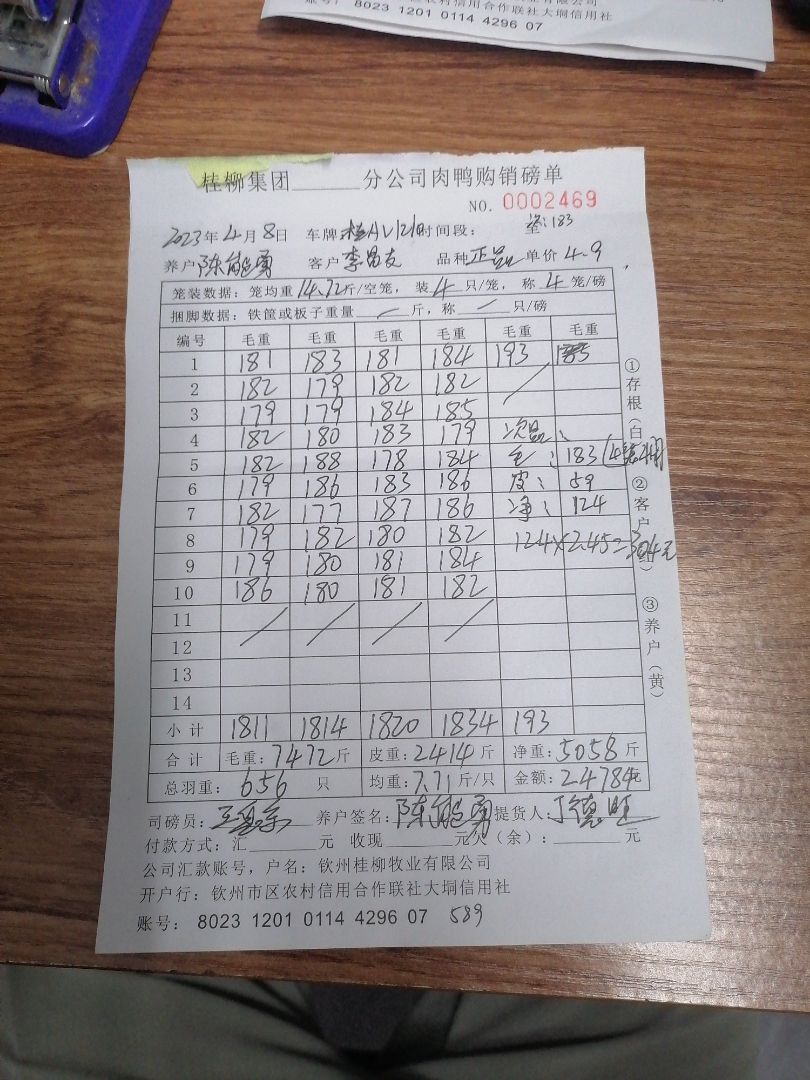 农村信用合作联社大垌信用社
8023 1201 0114 4296 07
桂柳集团______分公司肉鸭购销磅单
NO. 0002469
2023年4月8日 车牌: 时间段: 至: 183
养户 陈能勇 客户 品种 正品 单价 4.9
笼装数据: 笼均重 14.72 斤/空笼, 装 4 只/笼, 称 4 笼/磅
捆脚数据: 铁筐或板子重量 / 斤, 称 / 只/磅
编号 毛重 毛重 毛重 毛重 毛重 毛重
1 181 183 181 184 193
2 182 179 182 182 /
3 179 179 184 185
4 182 180 183 179 次品:
5 182 188 178 184 毛: 183
6 179 186 183 186 皮: 59
7 182 177 187 186 净: 124
8 179 182 180 182 124×2.45=304元
9 179 180 181 184
10 186 180 181 182
11 / / / /
12
13
14
小计 1811 1814 1820 1834 193
合计 毛重: 7472 斤 皮重: 2414 斤 净重: 5058 斤
总羽重: 656 只 均重: 7.71 斤/只 金额: 24784元
司磅员: 养户签名: 陈能勇 提货人:
付款方式: 汇______元 收现______元欠(余): ______元
公司汇款账号, 户名: 钦州桂柳牧业有限公司
开户行: 钦州市区农村信用合作联社大垌信用社
账号: 8023 1201 0114 4296 07 589
①存根(白)
②客户
③养户(黄)